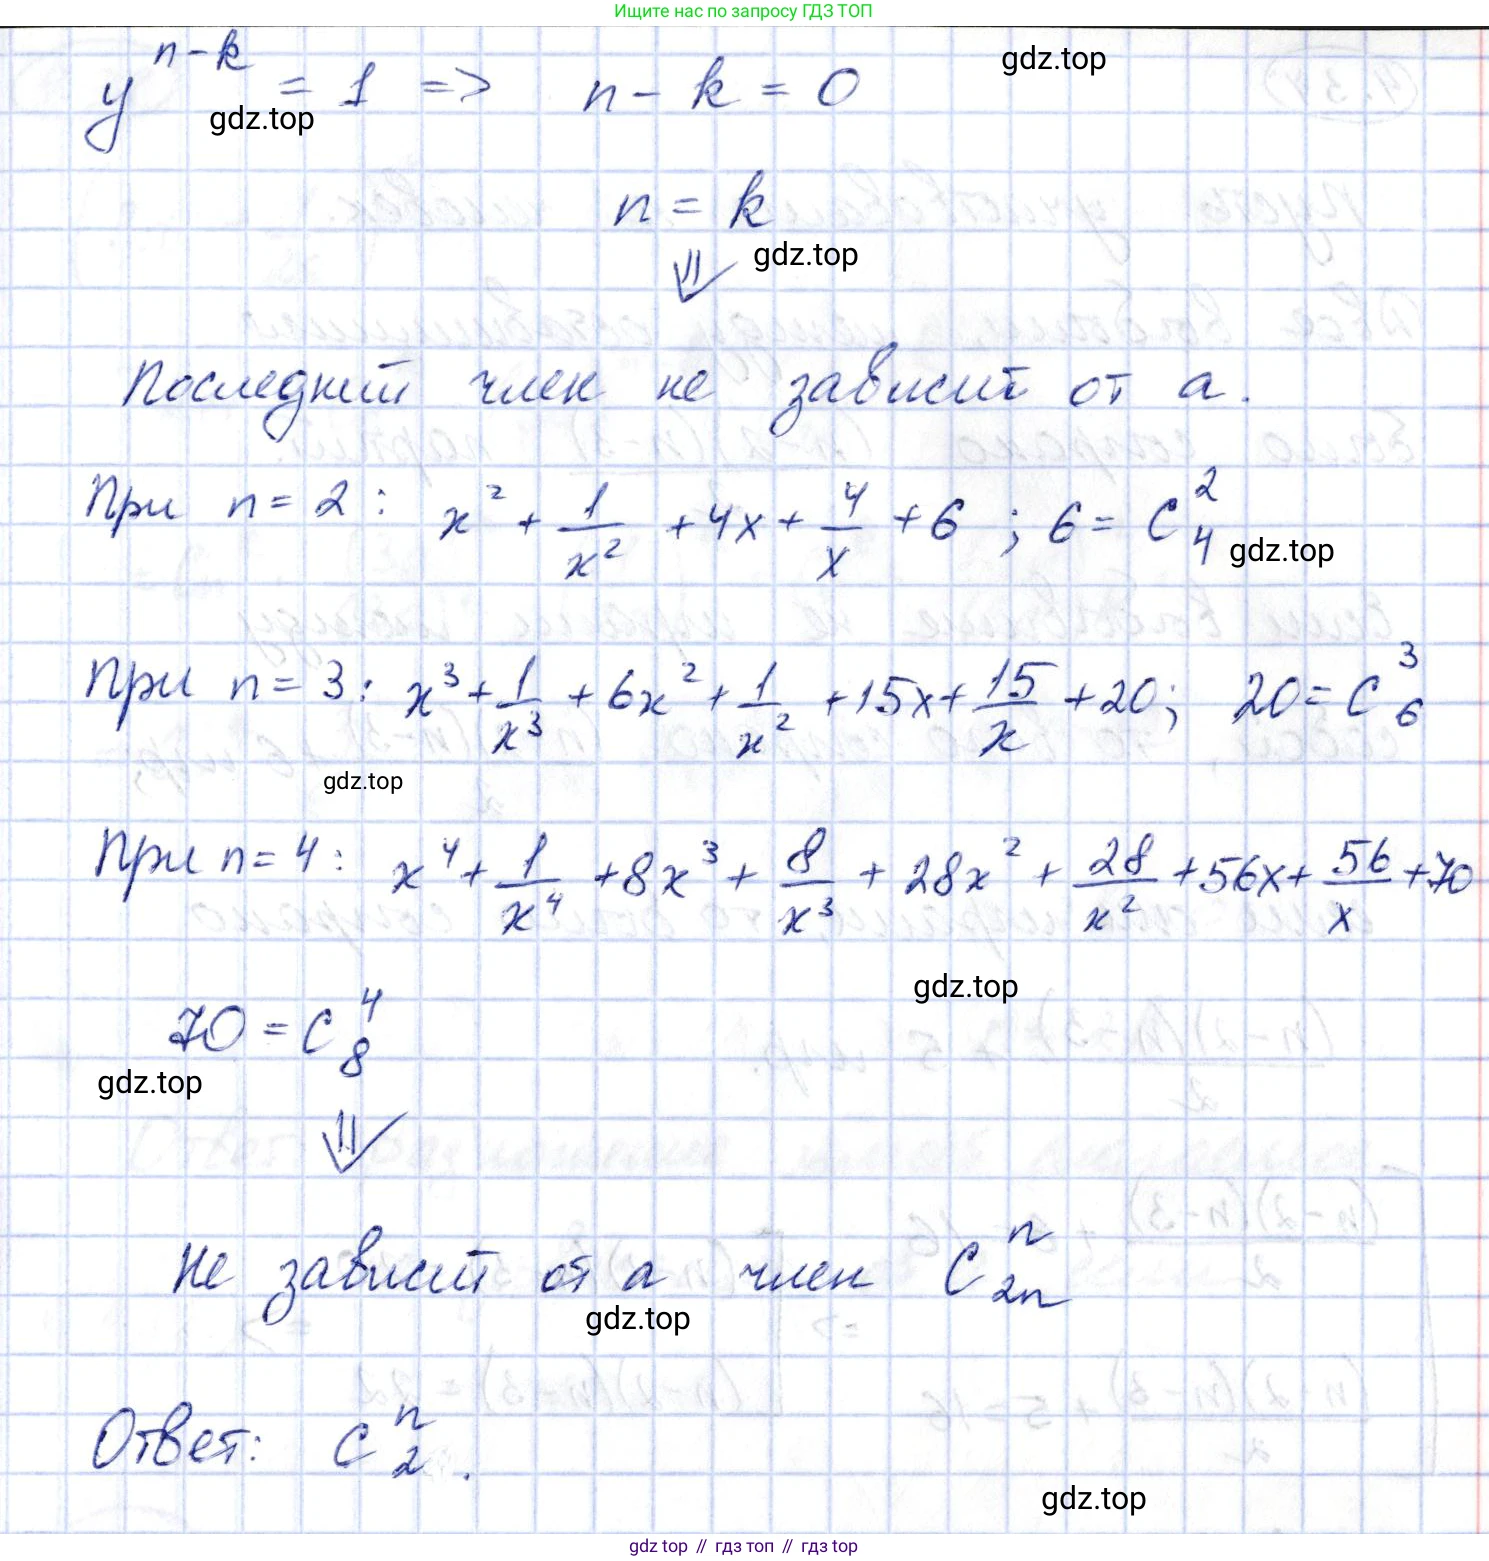 Ищите нас по запросу ГДЗ ТОП
y^{n-k} = 1 => n - k = 0
gdz.top
gdz.top
n = k
gdz.top
⇓
Последний член не зависит от a.
При n = 2: x² + 1/x² + 4x + 4/x + 6; 6 = C_4^2
gdz.top
При n = 3: x³ + 1/x³ + 6x² + 1/x² + 15x + 15/x + 20; 20 = C_6^3
gdz.top
При n = 4: x⁴ + 1/x⁴ + 8x³ + 8/x³ + 28x² + 28/x² + 56x + 56/x + 70
gdz.top
70 = C_8^4
gdz.top
⇓
Не зависит от a член C_{2n}^n
gdz.top
Ответ: C_2^n.
gdz.top
gdz top // гдз топ // гдз top